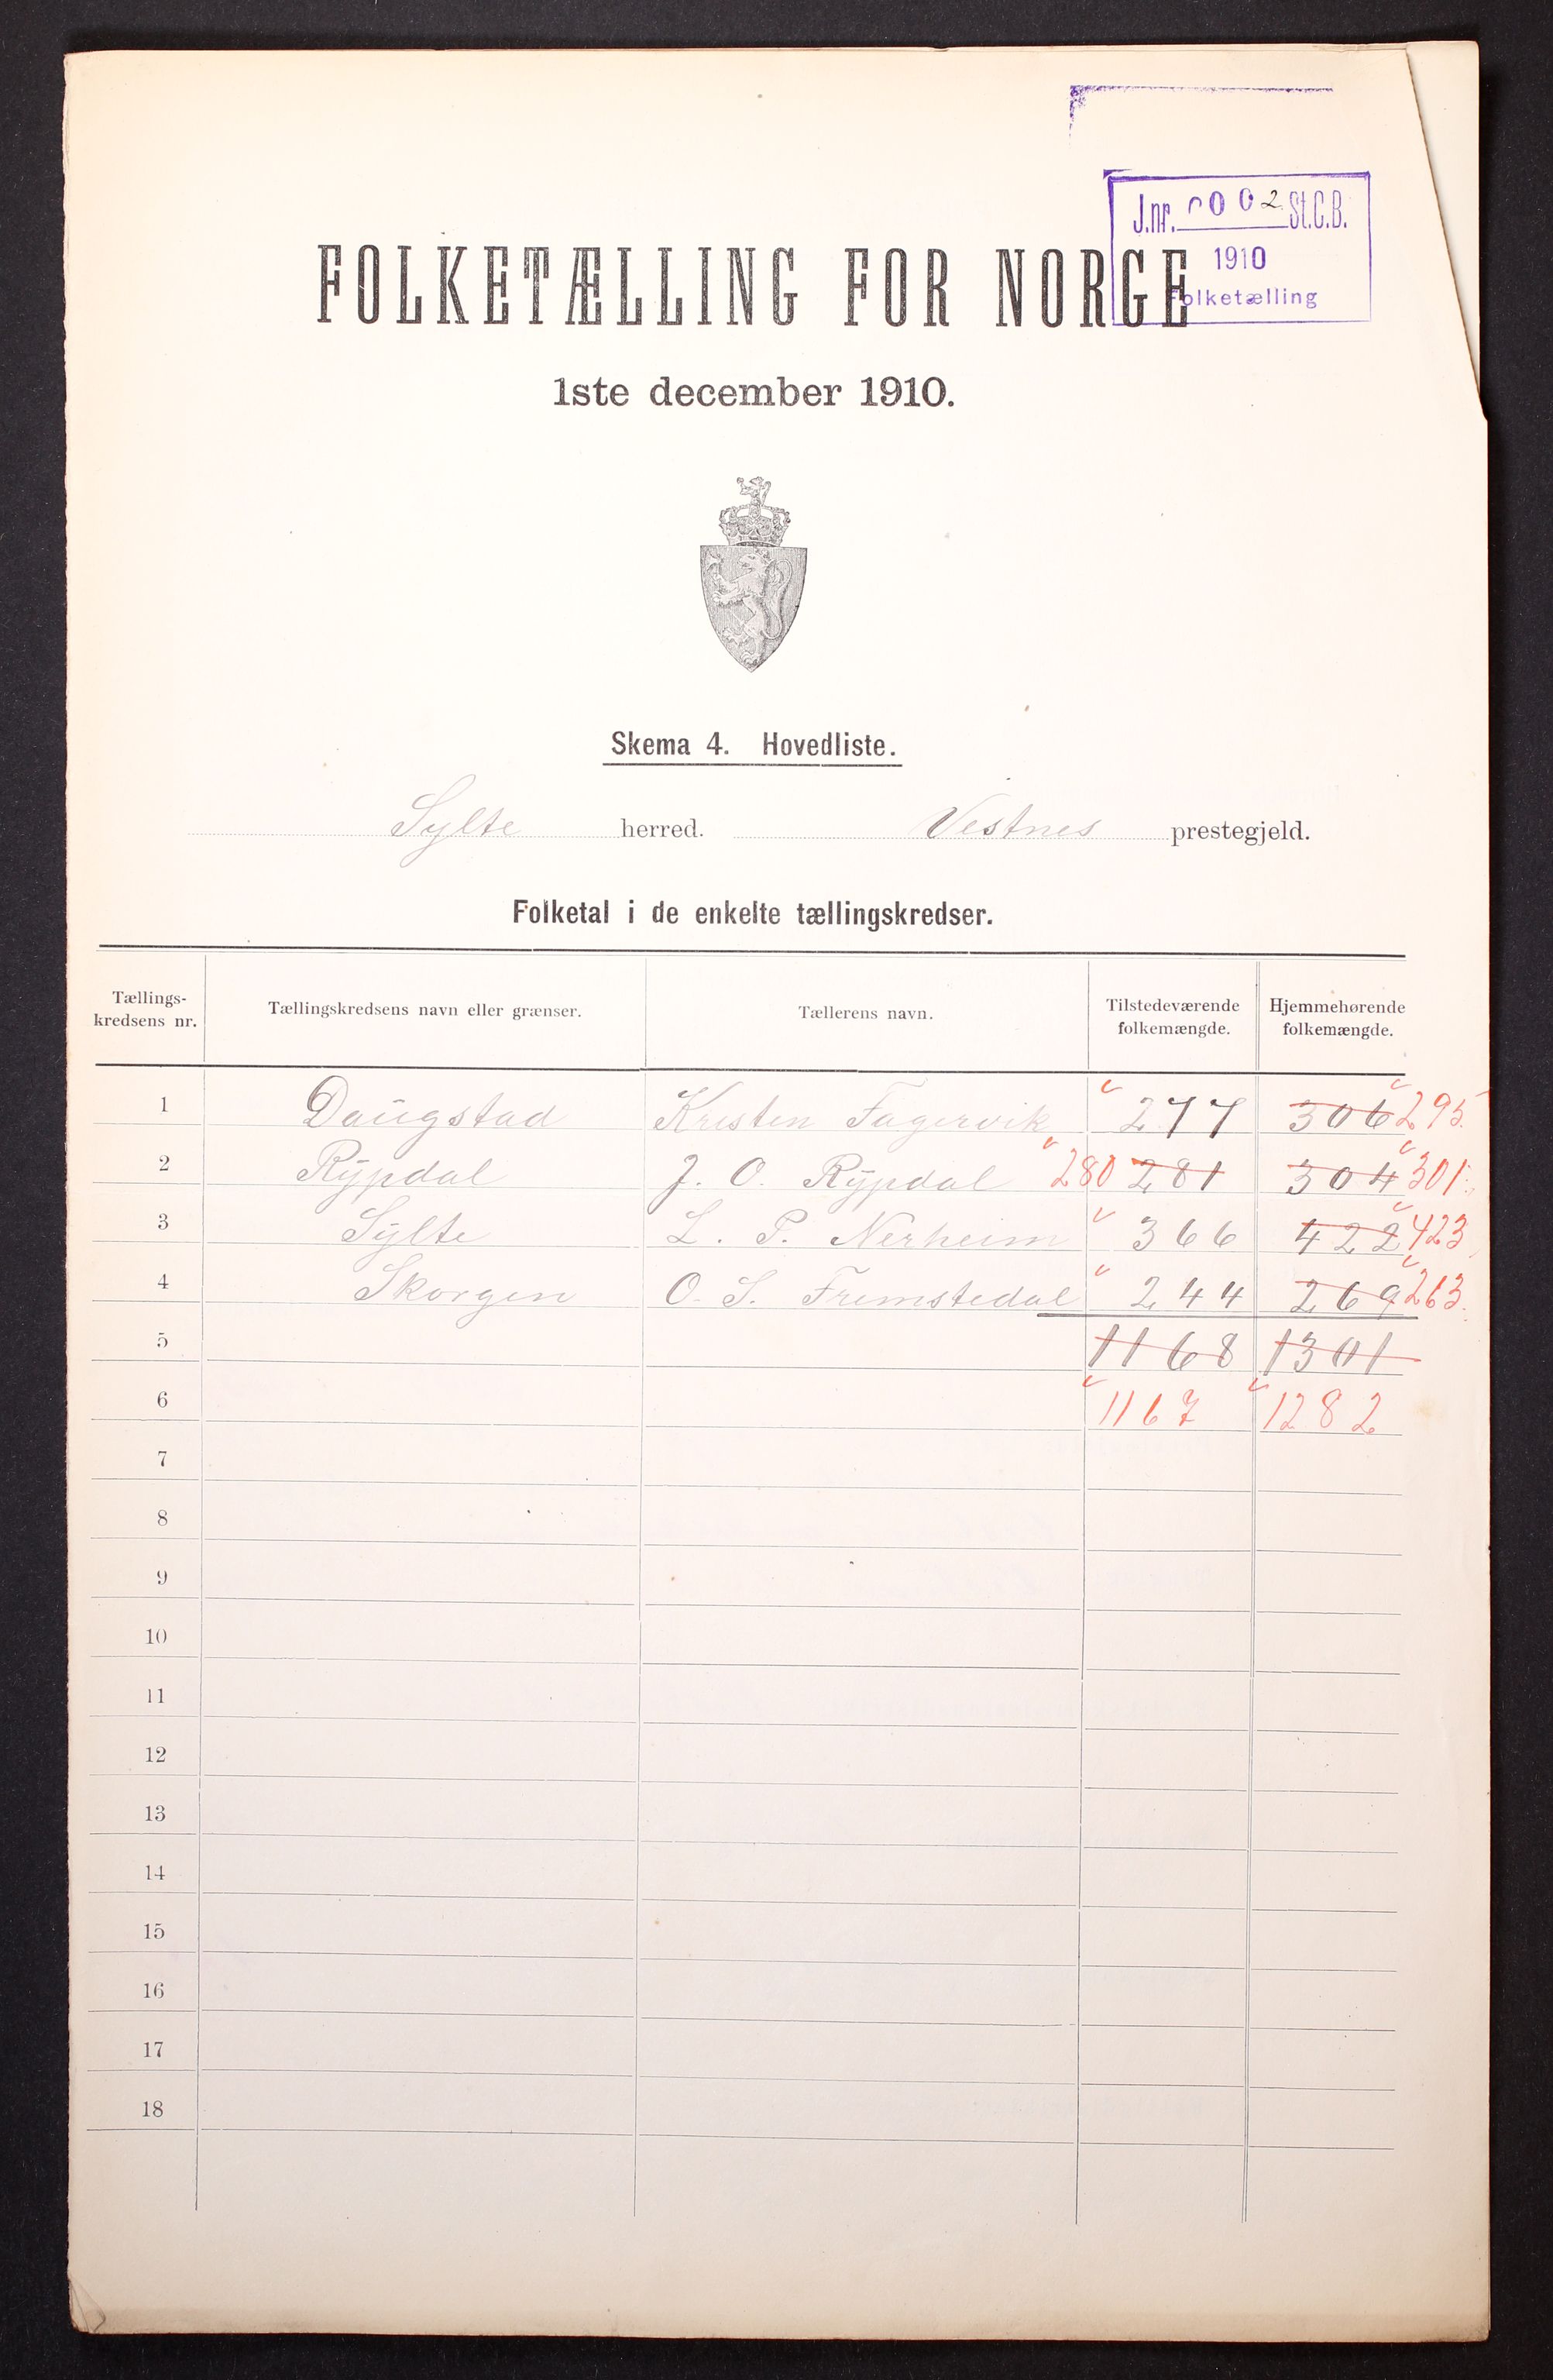 J.nr. 0002 St.C.B.
1910
Folketælling
FOLKETÆLLING FOR NORGE
1ste december 1910.
Skema 4. Hovedliste.
Sylte herred. Vestnes prestegjeld.
Folketal i de enkelte tællingskredser.
Tællings-kredsens nr. Tællingskredsens navn eller grænser. Tællerens navn. Tilstedeværende folkemængde. Hjemmehørende folkemængde.
1 Daugstad Kristen Fagervik 277 306 295.
2 Rypdal J. O. Rypdal 280 281 304 301.
3 Sylte L. P. Nerheim 366 422 423
4 Skorgen O. S. Fremstedal 244 269 263.
5 1168 1301
6 1167 1282
7
8
9
10
11
12
13
14
15
16
17
18